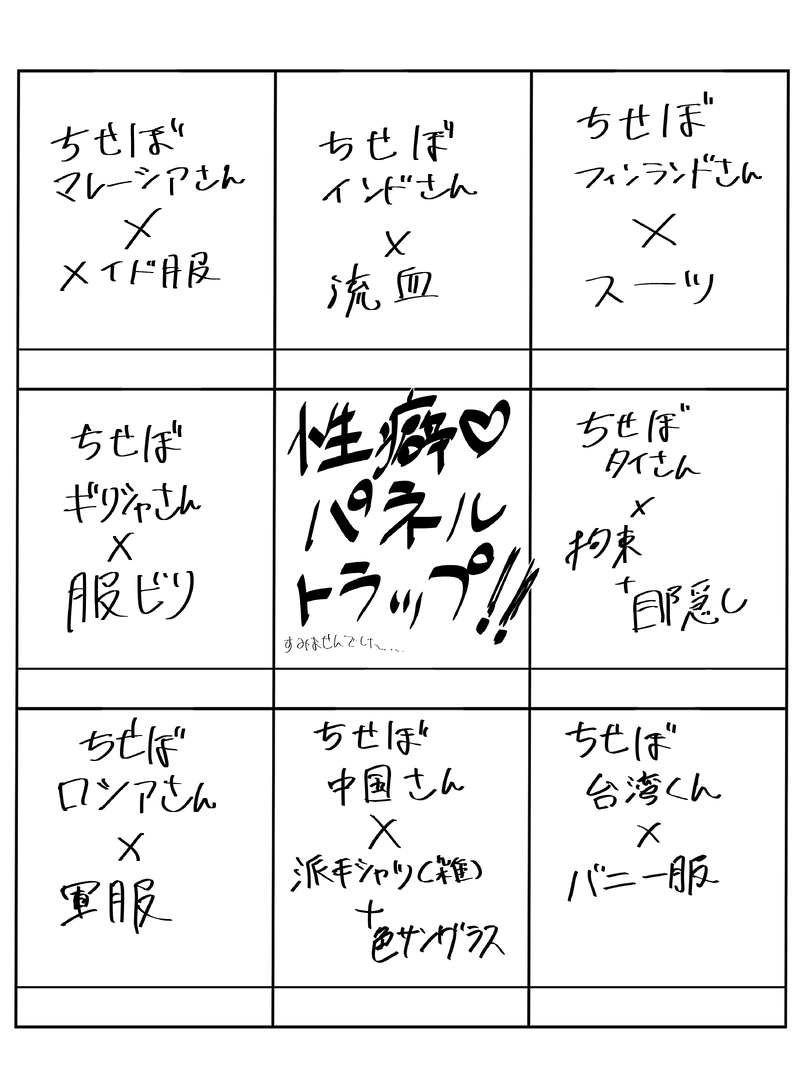 ちせぼ
マレーシアさん
×
メイド服
ちせぼ
インドさん
×
流血
ちせぼ
フィンランドさん
×
スーツ
ちせぼ
ギリシャさん
×
服ビリ
性癖♡
パネル
トラップ!!
すみませんでした……
ちせぼ
タイさん
×
拘束
+
目隠し
ちせぼ
ロシアさん
×
軍服
ちせぼ
中国さん
×
派手シャツ(雑)
+
色サングラス
ちせぼ
台湾くん
×
バニー服